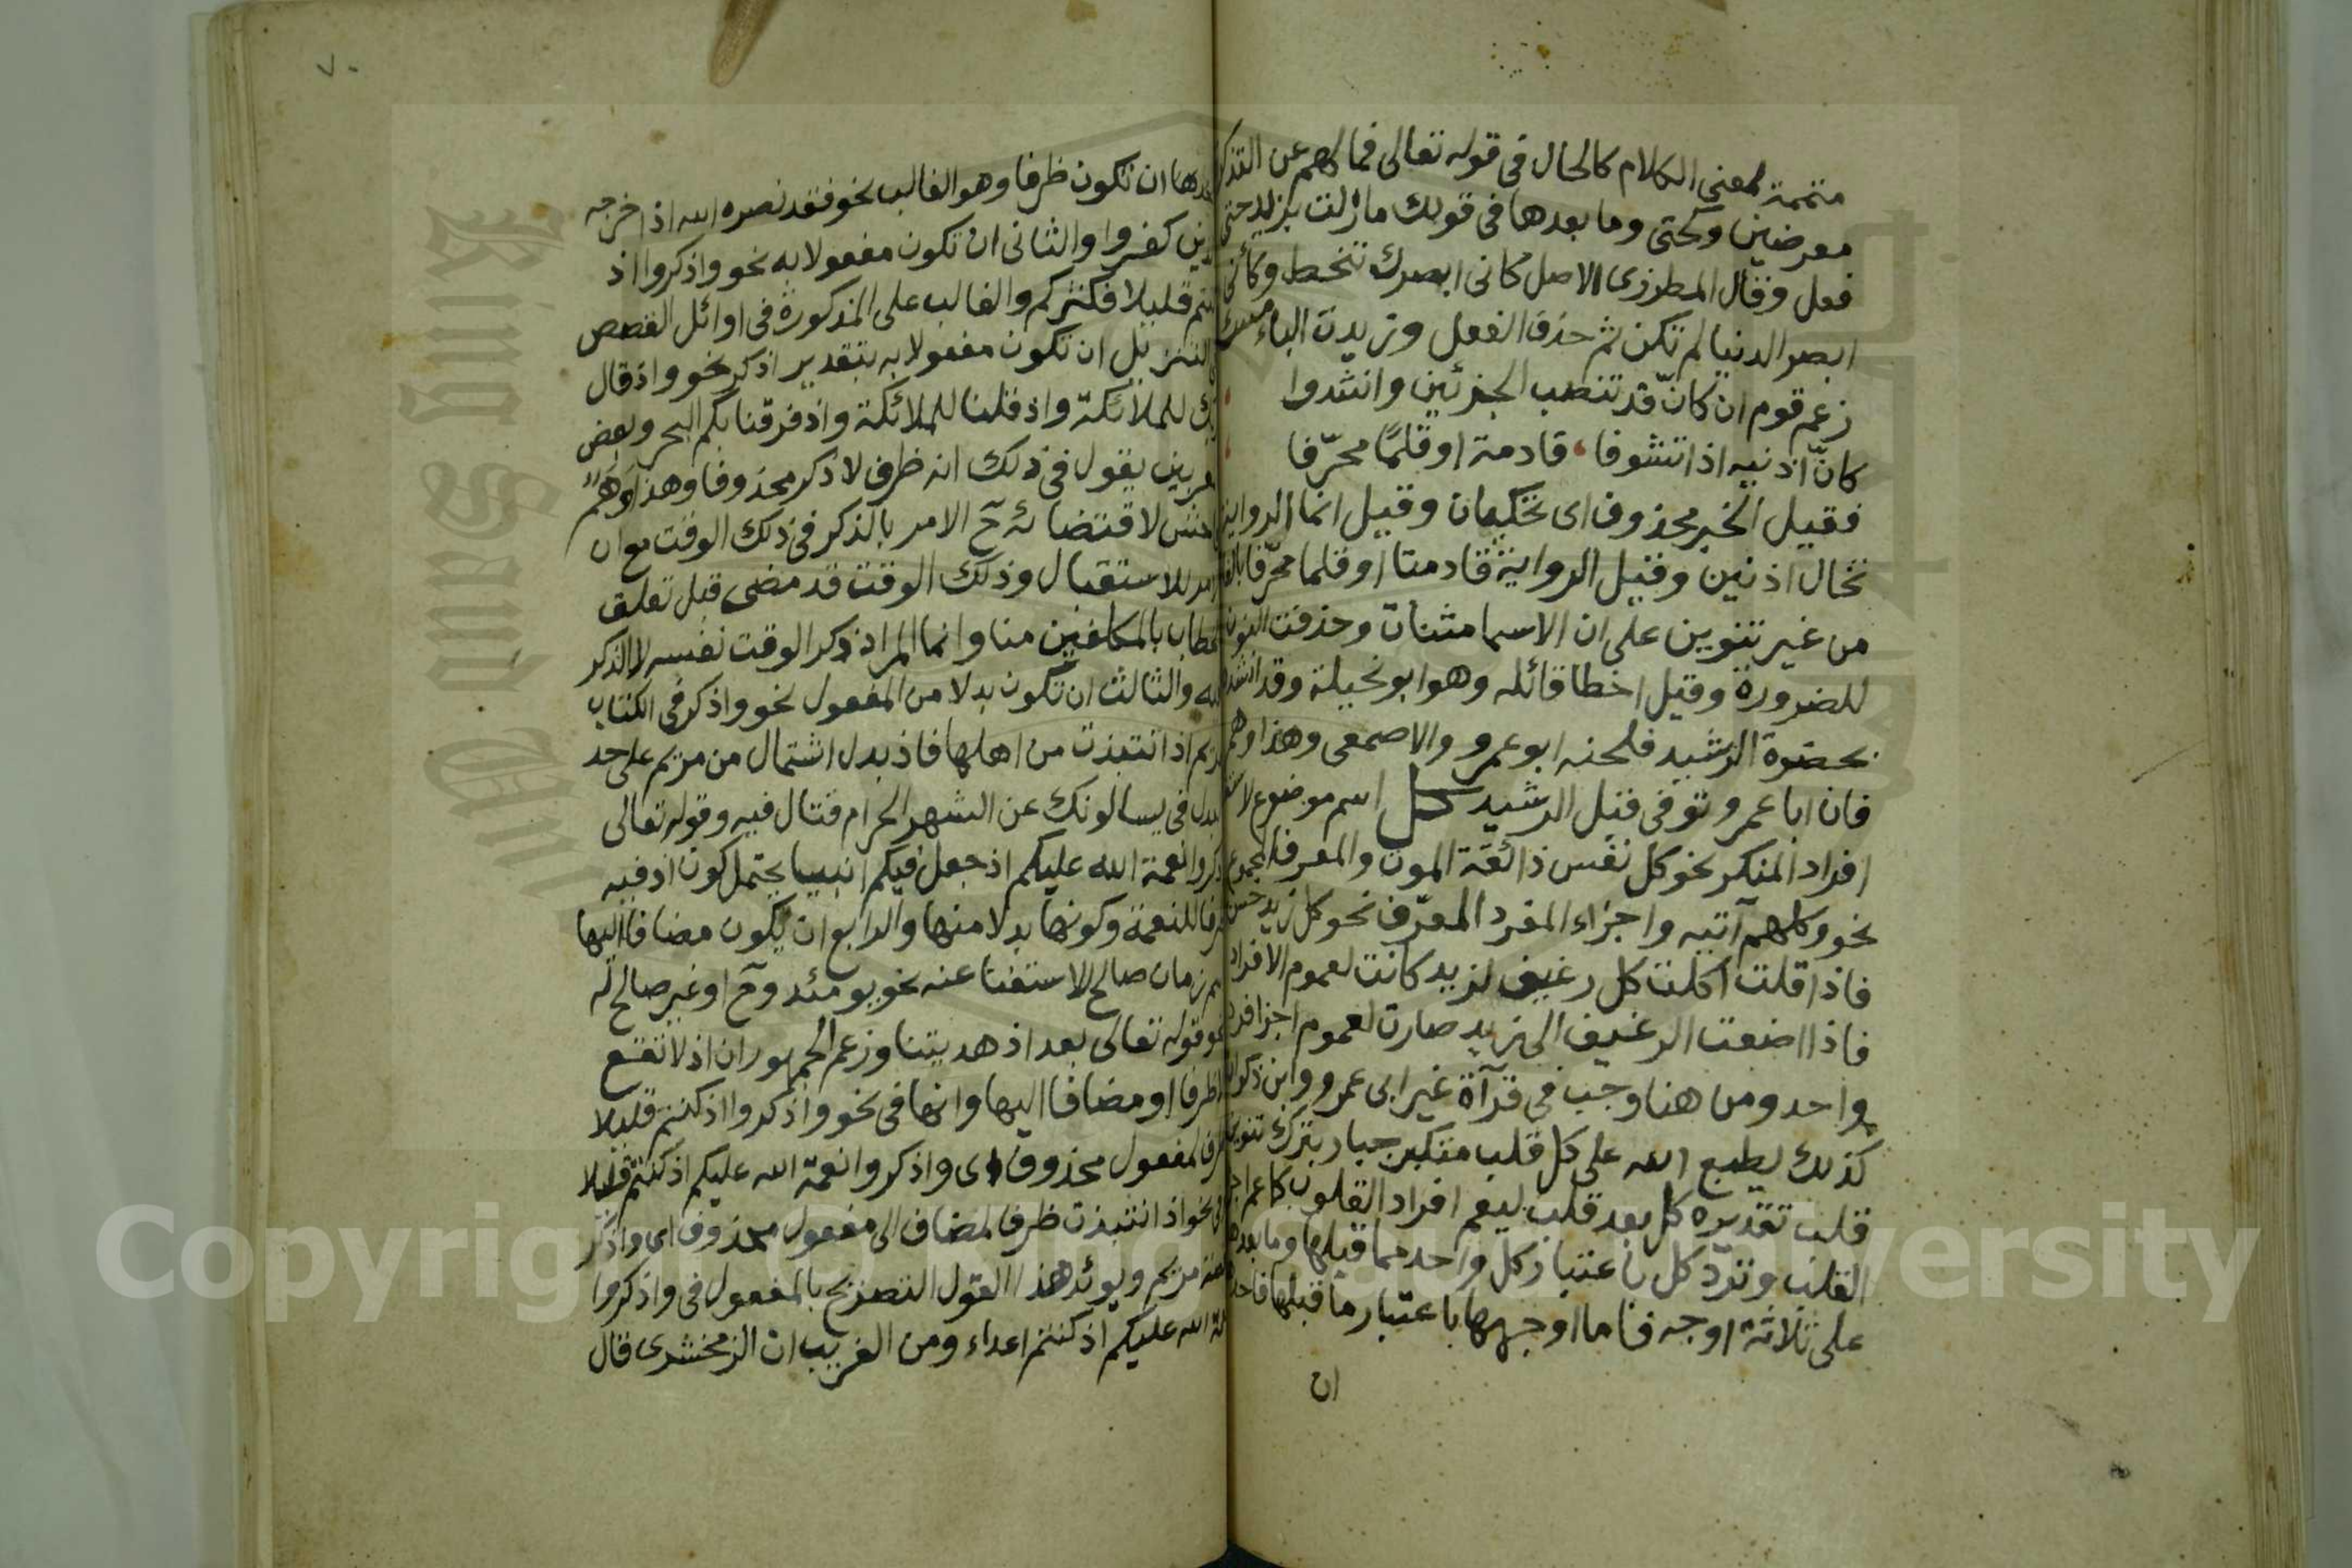 متممة لمعنى الكلام كالحال في قوله تعالى فما لهم عن التذكر
معرضين وكحتى وما بعدها في قولك ما زلت بزيد حتى
فعل وقال المطرزى الاصل كانى ابصرك تنحط وكأني
ابصر الدنيا لم تكن ثم حذف الفعل وزيدت الباء
زعم قوم ان كانّ قد تنصب الجزئين وانشدوا
كانّ اذنيه اذا تشوفا قادمة او قلمًا محرّفا
فقيل الخبر محذوف اى تحكيان وقيل انما الرواية
تخال اذنين وقيل الرواية قادمتا او قلما محرّفا
من غير تنوين على ان الاسما مثنات وحذفت النون
للضرورة وقيل اخطا قائله وهو ابو نخيلة وقد انشده
بحضرة الرشيد فلحنه ابو عمرو والاصمعى وهذا وهم
فان ابا عمرو توفى قبل الرشيد كل اسم موضوع
افراد المنكر نحو كل نفس ذائقة الموت والمعرف المجموع
نحو وكلهم آتيه واجزاء المفرد المعرّف نحو كل زيد حسن
فاذا قلت اكلت كل رغيف لزيد كانت لعموم الافراد
فاذا اضفت الرغيف الى زيد صارت لعموم اجزا فرد
واحد ومن هنا وجب في قرآة غير ابى عمرو وابن ذكوان
كذلك يطبع الله على كل قلب متكبر جبار بترك تنوين
قلب تقديره كل بعد قلب ليعم افراد القلوب كما عم
القلب وترد كل باعتبار كل واحد مما قبلها وما بعدها
على ثلاثة اوجه فاما اوجهها باعتبار ما قبلها
ان
٧٠
ان تكون ظرفا وهو الغالب نحو فقد نصره الله اذ اخرجه
كفروا والثانى ان تكون مفعولا به نحو واذكروا اذ
قليلا فكثركم والغالب على المذكورة في اوائل القصص
التنزيل ان تكون مفعولا به بتقدير اذكر نحو واذ قال
للملائكة واذ قلنا للملائكة واذ فرقنا بكم البحر وبعض
يقول في ذلك انه ظرف لاذكر محذوفا وهذا وهم
لاقتضائه ح الامر بالذكر في ذلك الوقت مع ان
للاستقبال وذلك الوقت قد مضى قبل تعلق
بالمكلفين منا وانما المراد ذكر الوقت نفسه لا الذكر
والثالث ان تكون بدلا من المفعول نحو واذكر في الكتاب
اذ انتبذت من اهلها فاذ بدل اشتمال من مريم على حد
البدل في يسالونك عن الشهر الحرام قتال فيه وقوله تعالى
نعمة الله عليكم اذ جعل فيكم انبيا يحتمل كون اذ فيه
للنعمة وكونها بدلا منها والرابع ان يكون مضافا اليها
زمان صالح للاستغنا عنه نحو يومئذ وح او غير صالح له
نحو قوله تعالى بعد اذ هديتنا وزعم الجمهور ان اذ لا تقع
ظرفا او مضافا اليها وانها في نحو واذكروا اذ كنتم قليلا
لمفعول محذوف اى واذكروا نعمة الله عليكم اذ كنتم قليلا
نحو اذ انتبذت ظرفا لمضاف الى مفعول محذوف اى واذكر
مريم ويوئد هذا القول التصريح بالمفعول في واذكروا
الله عليكم اذ كنتم اعداء ومن الغريب ان الزمخشرى قال
King Saud Uni
Copyright © King Saud University